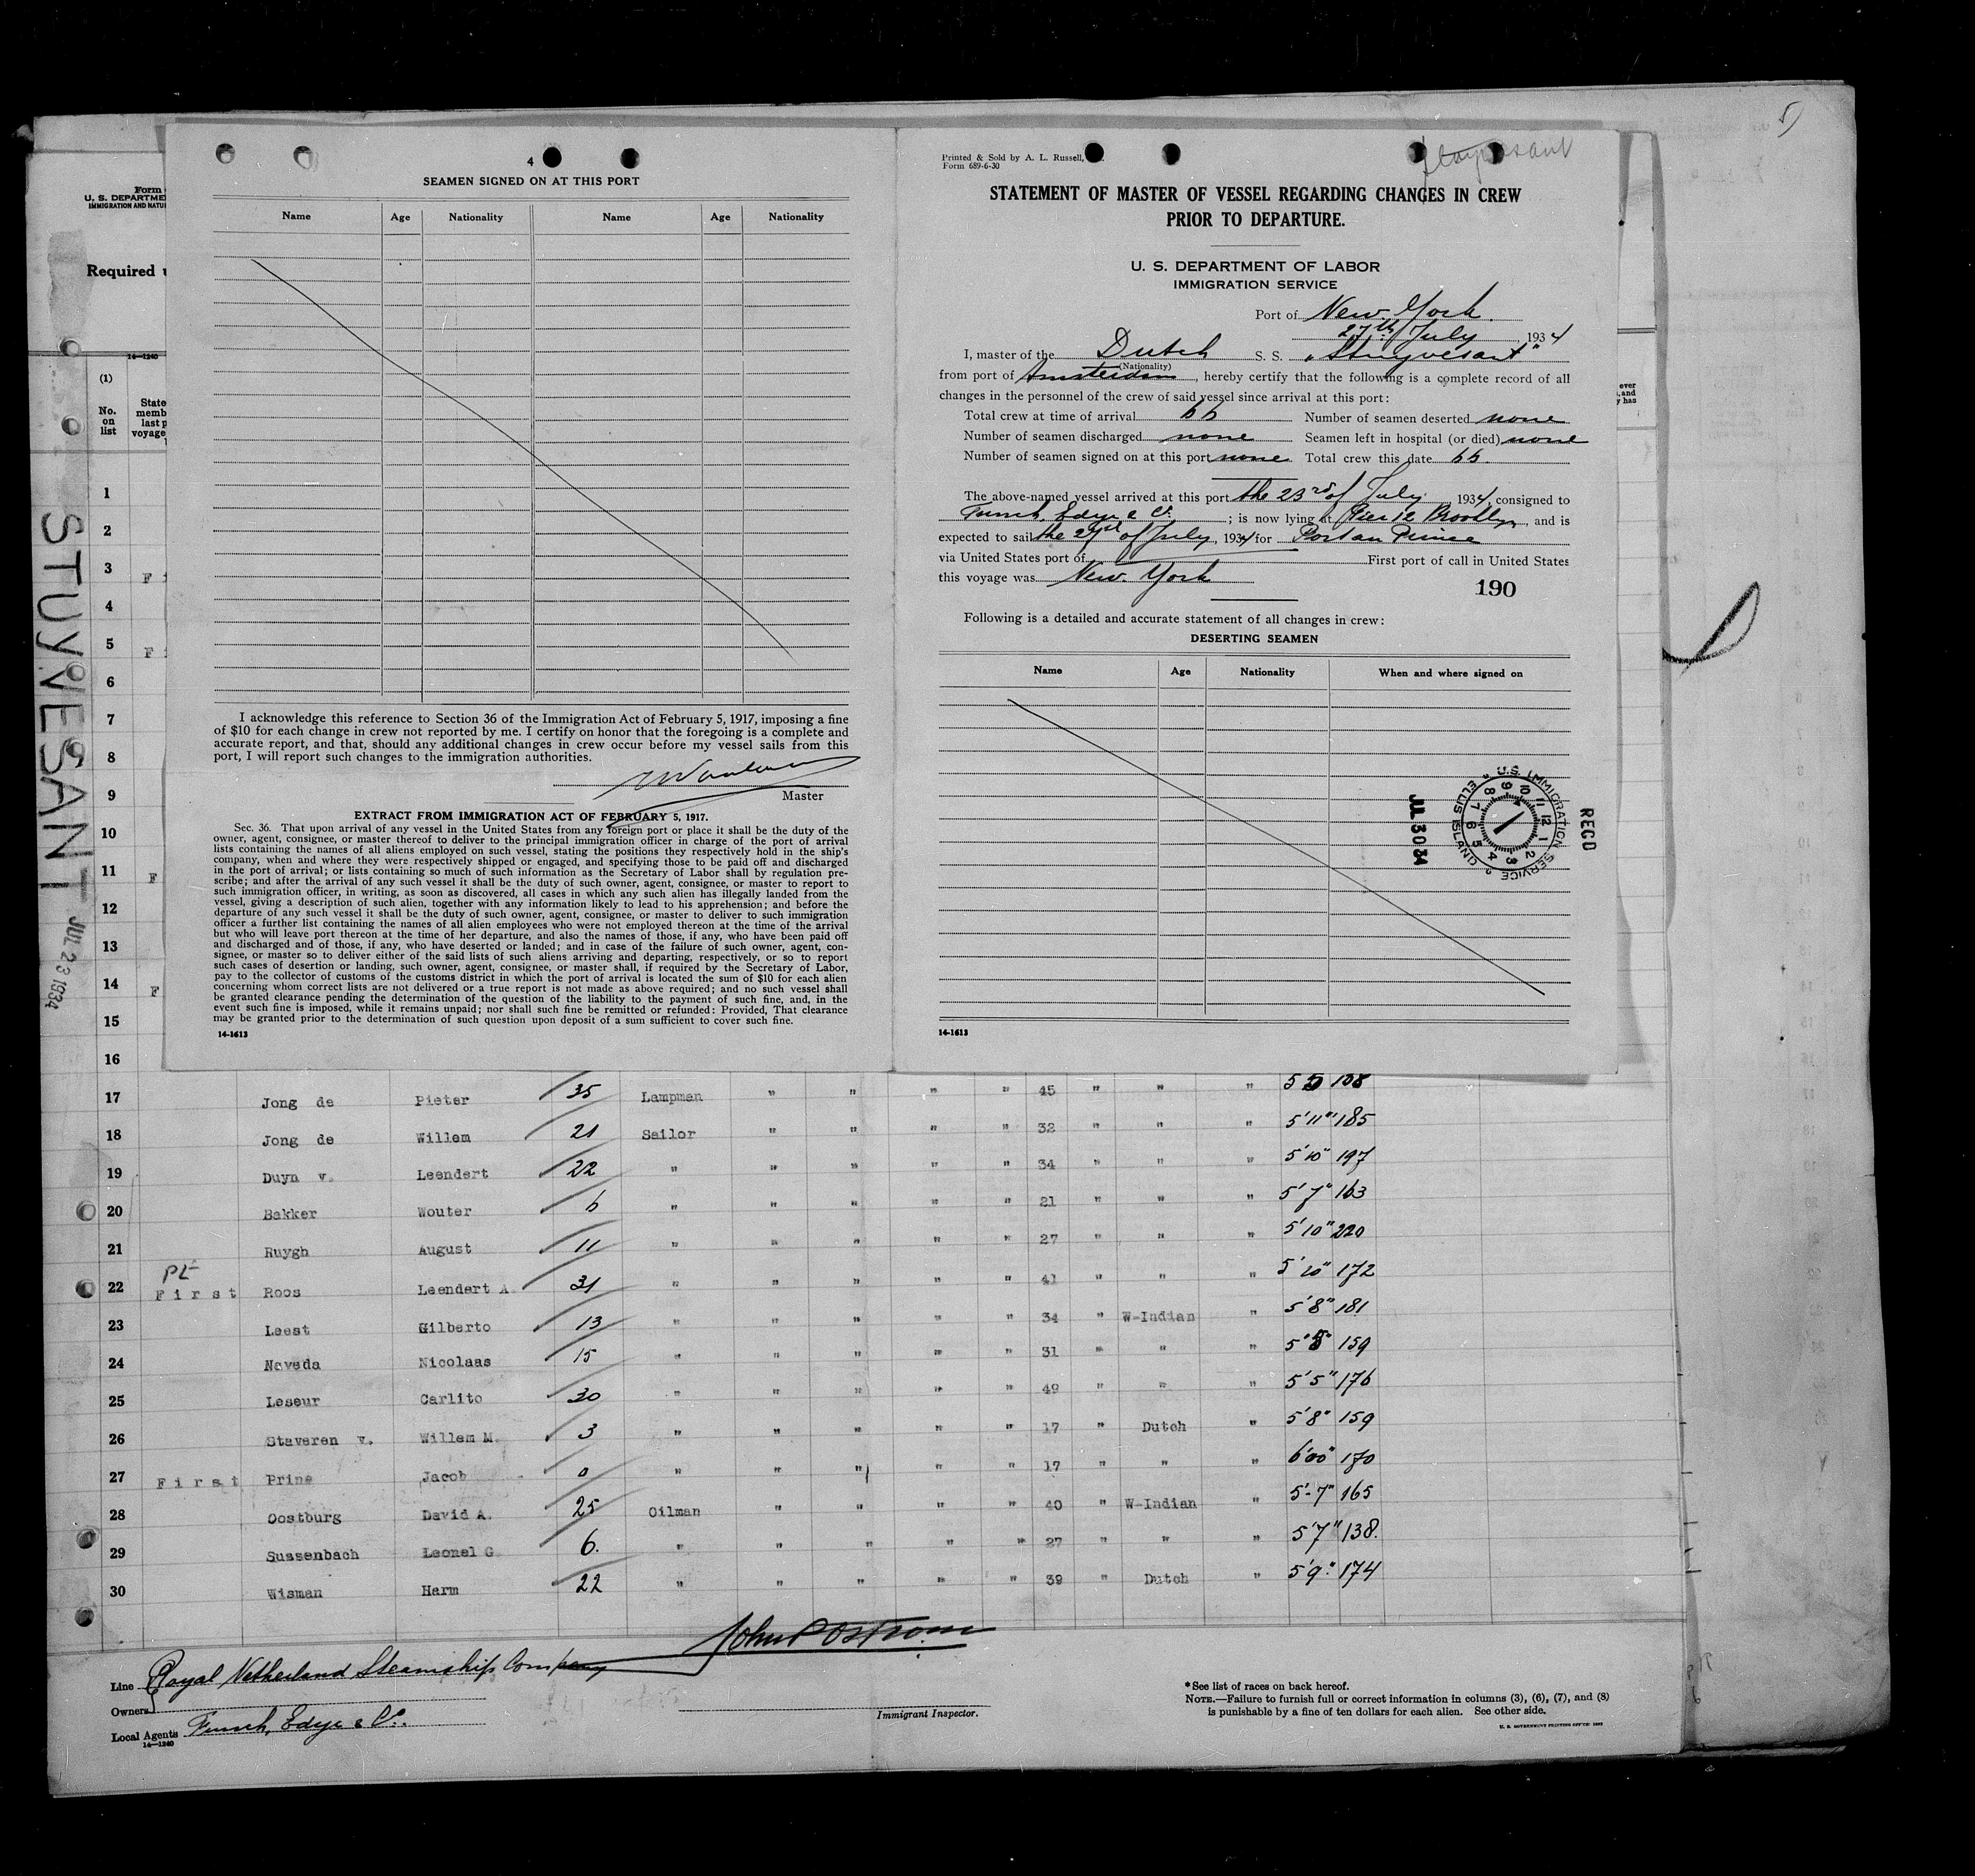 5
Form
U. S. DEPARTME
IMMIGRATION AND NATU
Required u
14—1240
(1)
No.
on
list
State
memb
last p
voyage
STUYVESANT
JUL 23 1934
1
2
3 F i
4
5 F i
6
7
8
9
10
11 F
12
13
14 F
15
16
4
SEAMEN SIGNED ON AT THIS PORT
Name Age Nationality Name Age Nationality
I acknowledge this reference to Section 36 of the Immigration Act of February 5, 1917, imposing a fine
of $10 for each change in crew not reported by me. I certify on honor that the foregoing is a complete and
accurate report, and that, should any additional changes in crew occur before my vessel sails from this
port, I will report such changes to the immigration authorities.
Master
EXTRACT FROM IMMIGRATION ACT OF FEBRUARY 5, 1917.
Sec. 36. That upon arrival of any vessel in the United States from any foreign port or place it shall be the duty of the
owner, agent, consignee, or master thereof to deliver to the principal immigration officer in charge of the port of arrival
lists containing the names of all aliens employed on such vessel, stating the positions they respectively hold in the ship's
company, when and where they were respectively shipped or engaged, and specifying those to be paid off and discharged
in the port of arrival; or lists containing so much of such information as the Secretary of Labor shall by regulation pre-
scribe; and after the arrival of any such vessel it shall be the duty of such owner, agent, consignee, or master to report to
such immigration officer, in writing, as soon as discovered, all cases in which any such alien has illegally landed from the
vessel, giving a description of such alien, together with any information likely to lead to his apprehension; and before the
departure of any such vessel it shall be the duty of such owner, agent, consignee, or master to deliver to such immigration
officer a further list containing the names of all alien employees who were not employed thereon at the time of the arrival
but who will leave port thereon at the time of her departure, and also the names of those, if any, who have been paid off
and discharged and of those, if any, who have deserted or landed; and in case of the failure of such owner, agent, con-
signee, or master so to deliver either of the said lists of such aliens arriving and departing, respectively, or so to report
such cases of desertion or landing, such owner, agent, consignee, or master shall, if required by the Secretary of Labor,
pay to the collector of customs of the customs district in which the port of arrival is located the sum of $10 for each alien
concerning whom correct lists are not delivered or a true report is not made as above required; and no such vessel shall
be granted clearance pending the determination of the question of the liability to the payment of such fine, and, in the
event such fine is imposed, while it remains unpaid; nor shall such fine be remitted or refunded: Provided, That clearance
may be granted prior to the determination of such question upon deposit of a sum sufficient to cover such fine.
14-1613
Printed & Sold by A. L. Russell,
Form 689-6-30
STATEMENT OF MASTER OF VESSEL REGARDING CHANGES IN CREW
PRIOR TO DEPARTURE.
U. S. DEPARTMENT OF LABOR
IMMIGRATION SERVICE
Port of New York.
27th July 1934
I, master of the Dutch S. S. "Stuyvesant"
(Nationality)
from port of Amsterdam, hereby certify that the following is a complete record of all
changes in the personnel of the crew of said vessel since arrival at this port:
Total crew at time of arrival 66 Number of seamen deserted none
Number of seamen discharged none Seamen left in hospital (or died) none
Number of seamen signed on at this port none Total crew this date 66.
The above-named vessel arrived at this port the 23rd of July, 1934, consigned to
Funch, Edye & Co.; is now lying at Pier 12 Brooklyn, and is
expected to sail the 27st of July, 1934 for Port au Prince
via United States port of First port of call in United States
this voyage was New York
190
Following is a detailed and accurate statement of all changes in crew:
DESERTING SEAMEN
Name Age Nationality When and where signed on
U.S. IMMIGRATION SERVICE ELLIS ISLAND
RECD
JUL 30 34
14-1613
ever
, and
y has
17 Jong de Pieter 35 Lampman " " " " 45 " " " 5 5 108
18 Jong de Willem 21 Sailor " " " " 32 " " " 5'11" 185
19 Duyn v. Leendert 22 " " " " " 34 " " " 5'10" 197
20 Bakker Wouter 6 " " " " " 21 " " " 5'7" 163
21 Ruygh August 11 " " " " " 27 " " " 5'10" 220
22 PE First Roos Leendert A. 31 " " " " " 41 " " " 5'10" 172
23 Leest Gilberto 13 " " " " " 34 " W-Indian " 5'8" 181
24 Naveda Nicolaas 15 " " " " " 31 " " " 5'5" 159
25 Leseur Carlito 30 " " " " " 49 " " " 5'5" 176
26 Staveren v. Willem M. 3 " " " " " 17 " Dutch " 5'8" 159
27 First Prins Jacob 0 " " " " " 17 " " " 6'00" 170
28 Oostburg David A. 25 Oilman " " " " 40 " W-Indian " 5'-7" 165
29 Sussenbach Leonel G 6. " " " " " 27 " " " 5'7" 138.
30 Wisman Harm 22 " " " " " 39 " Dutch " 5'9" 174
Line Royal Netherland Steamship Company
Owners
Local Agents Funch, Edye & Co.
14—1240
John P Ostrom
Immigrant Inspector.
*See list of races on back hereof.
NOTE.—Failure to furnish full or correct information in columns (3), (6), (7), and (8)
is punishable by a fine of ten dollars for each alien. See other side.
U. S. GOVERNMENT PRINTING OFFICE: 1932